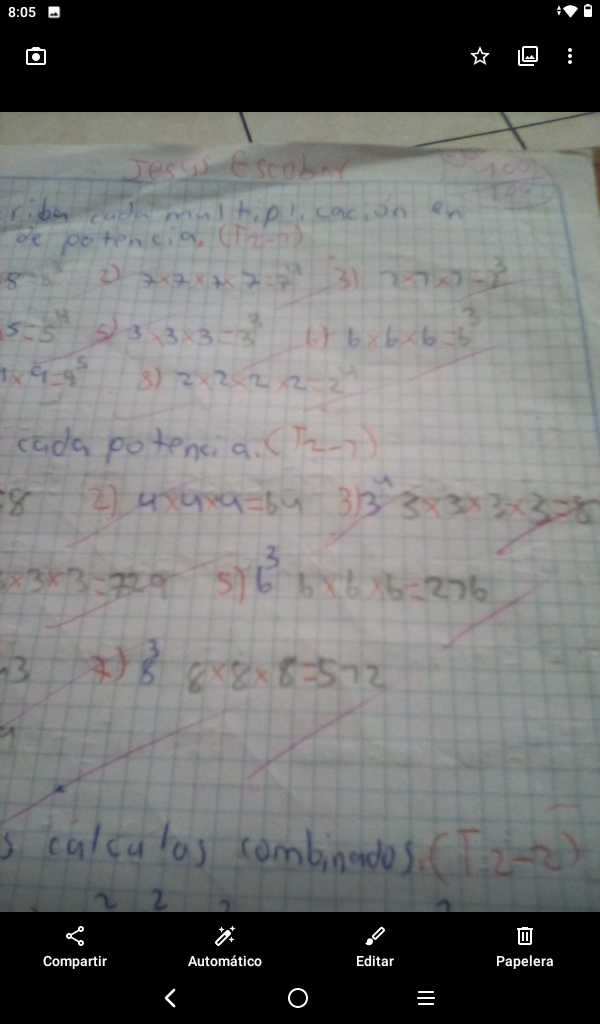 8:05
Jesus Escobar
100
100
riba cada multiplicación en
de potencia. (T2-1)
8=8³ 2) 7×7×7×7=7⁴ 3) 7×7×7=7³
5=5⁴ 5) 3×3×3=3³ 6) 6×6×6=6³
×9=9⁵ 8) 2×2×2×2=2⁴
cada potencia. (T2-1)
=8 2) 4×4×4=64 3) 3⁴ 3×3×3×3=8
×3×3=729 5) 6³ 6×6×6=216
3 7) 8³ 8×8×8=512
s cálculos combinados. (T2-2)
2 2 2 2
Compartir Automático Editar Papelera